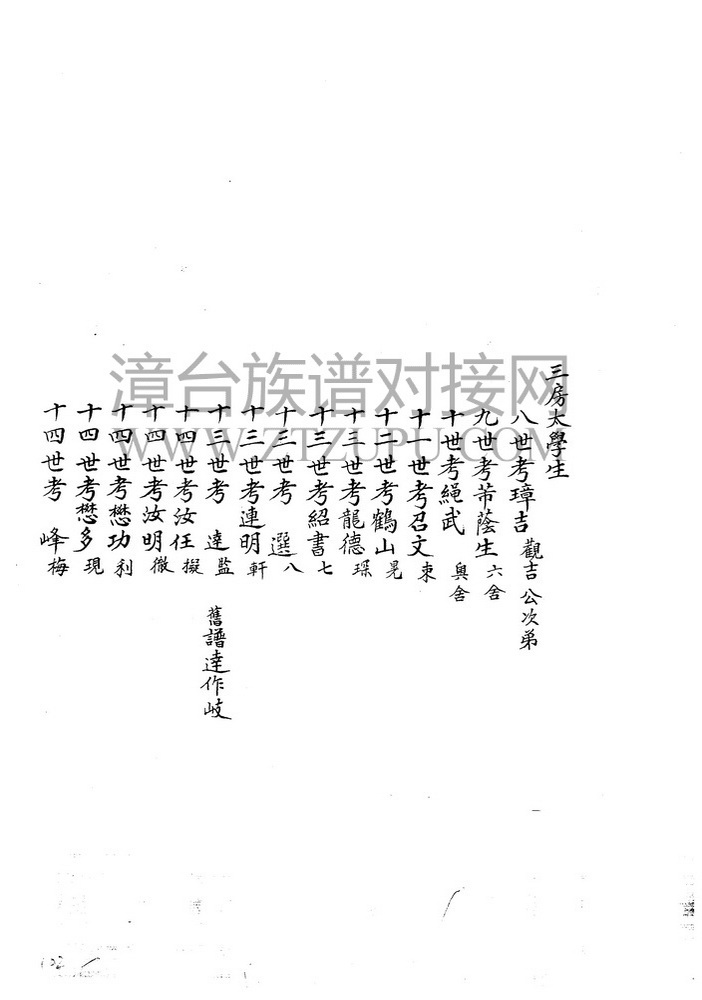 三房太學生
八世考璋吉 觀吉公次弟
九世考芾蔭生 六舍
十世考繩武 與舍
十一世考召文 束
十二世考鶴山 晃
十三世考龍德 琛
十三世考紹書 七
十三世考 選 八
十三世考連明 軒
十三世考 達 監 舊譜達作岐
十四世考汝任 擬
十四世考汝明 徵
十四世考懋功 利
十四世考懋多 現
十四世考 峰 梅
漳台族谱对接网
WWW.ZTZUPU.COM
102